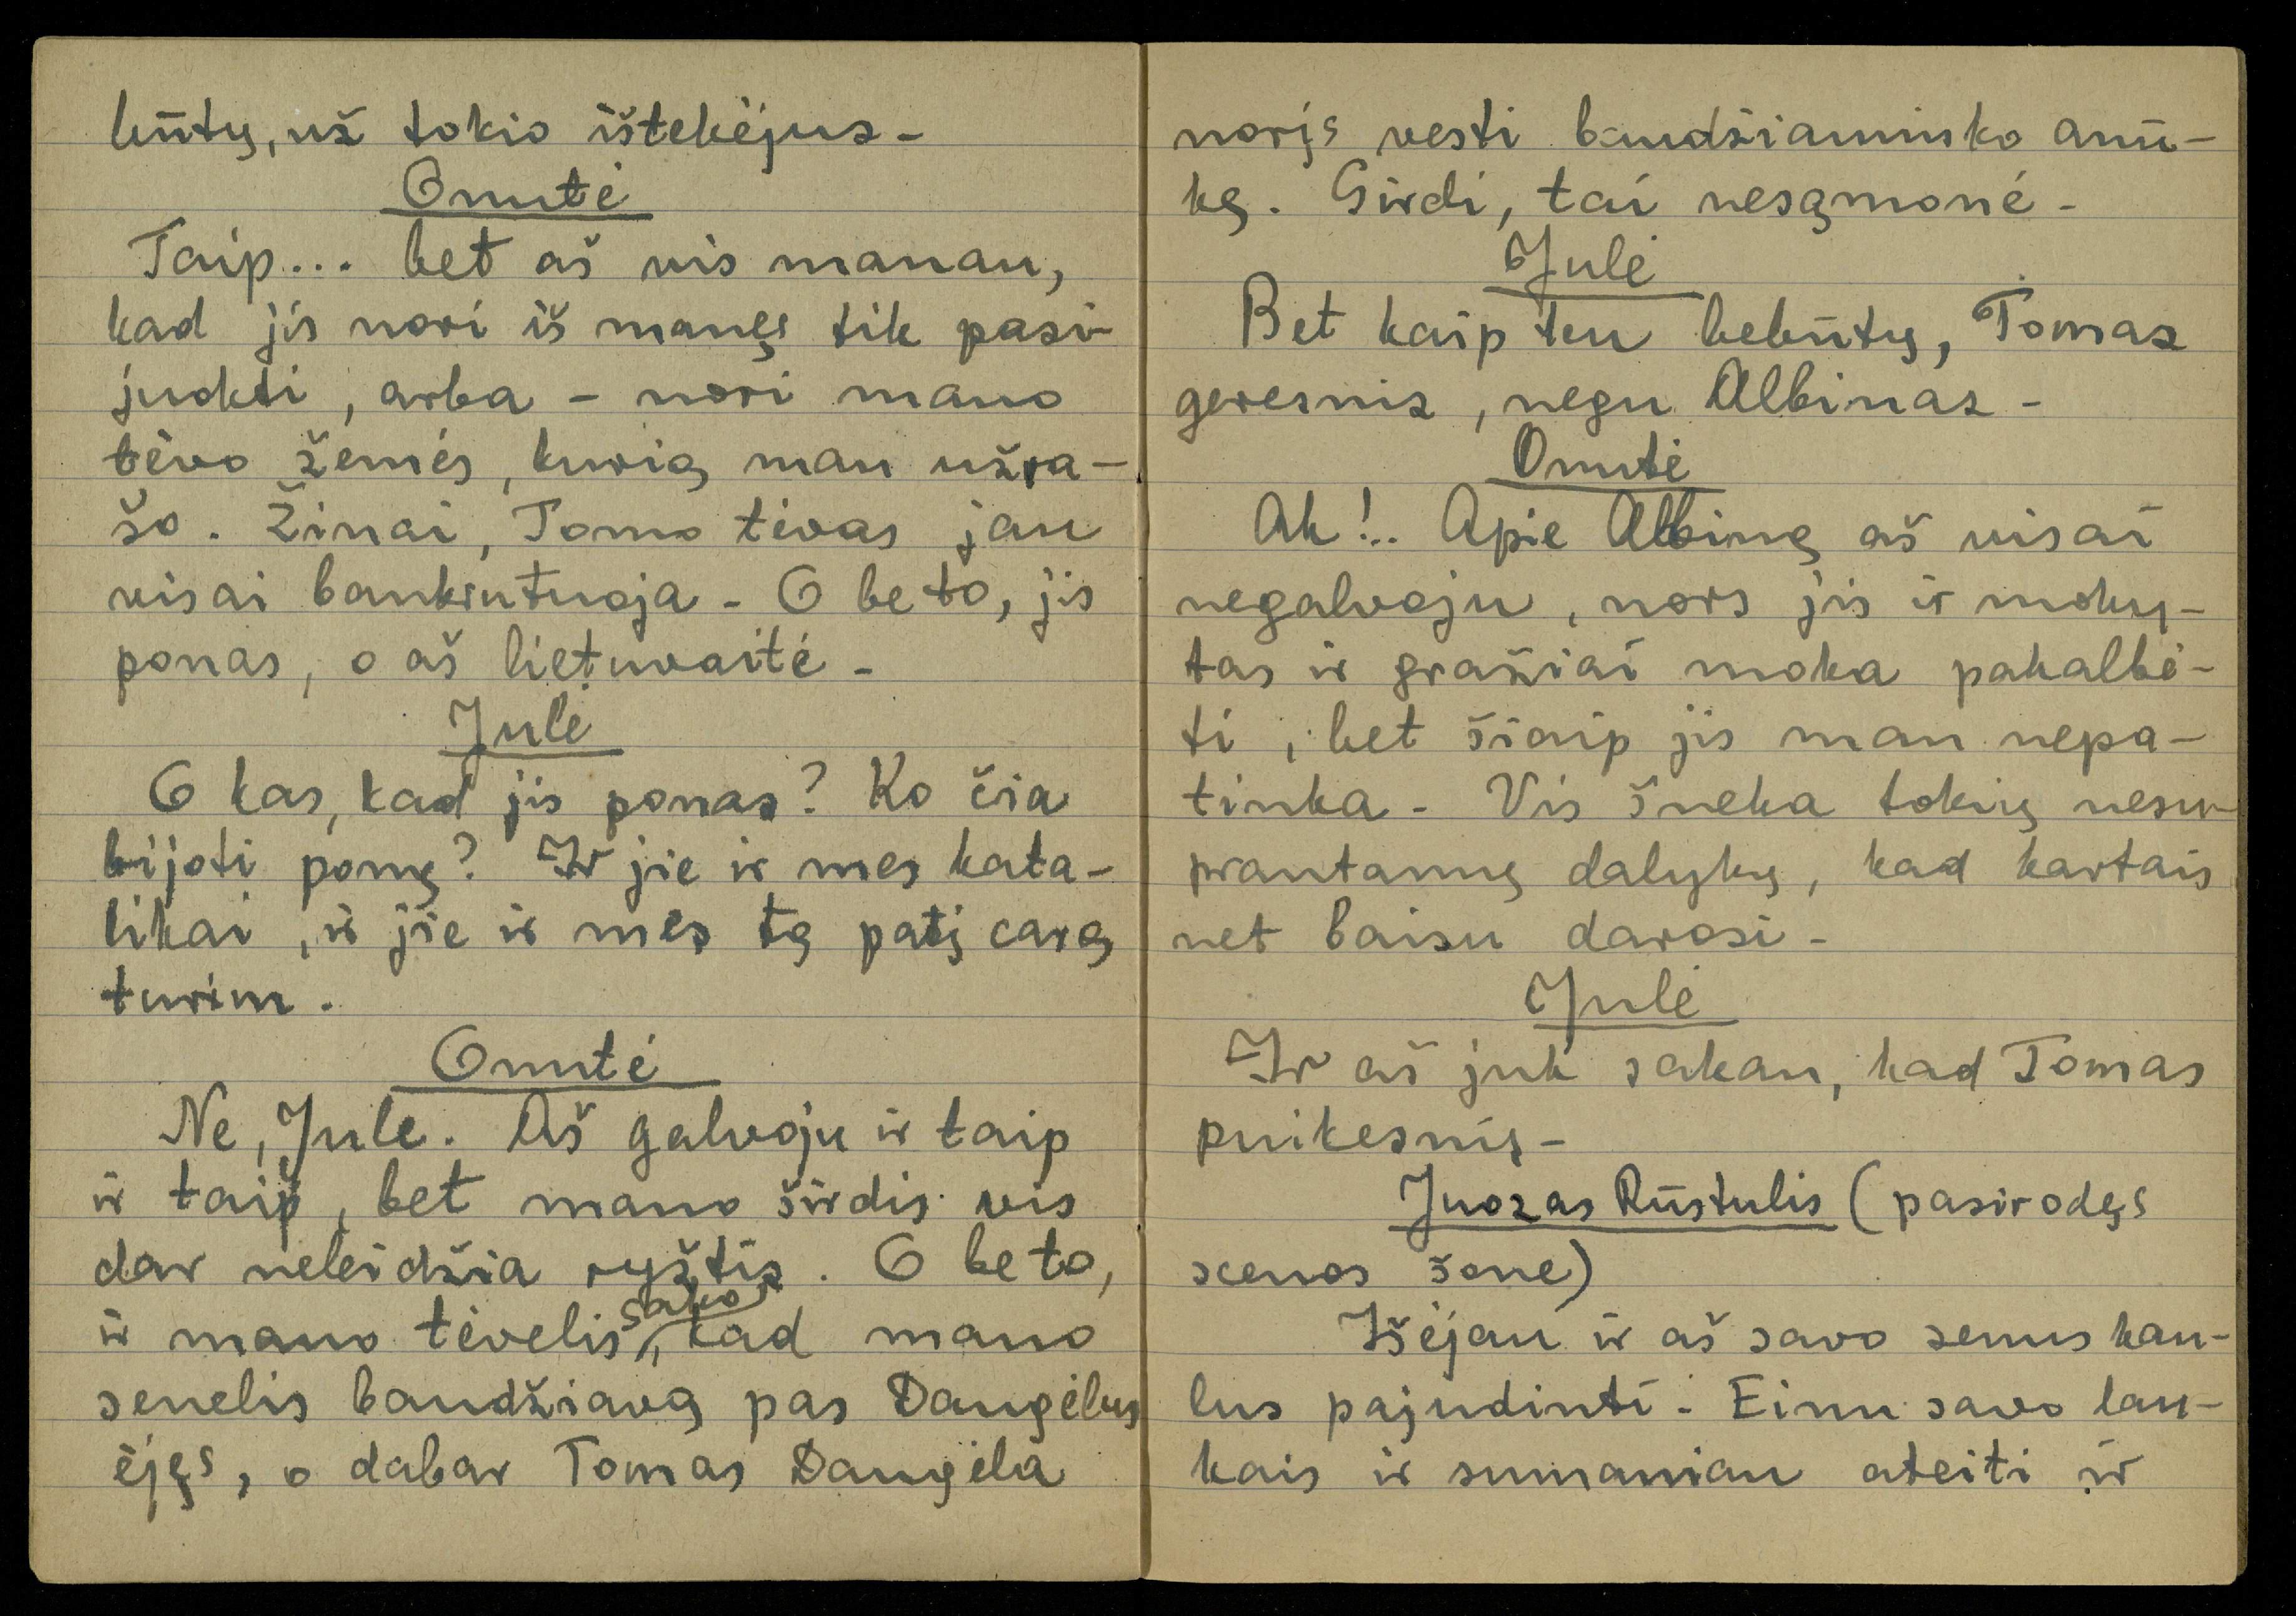 būtų, už tokio ištekėjus-
Onutė
Taip... bet aš vis manau,
kad jis nori iš manęs tik pasi-
juokti, arba - nori mano
tėvo žemės, kurią man užra-
šo. Žinai, Tomo tėvas jau
visai bankrutuoja - O be to, jis
ponas, o aš lietuvaitė -
Julė
O kas, kad jis ponas? Ko čia
bijoti ponų? Ir jie ir mes kata-
likai, ir jie ir mes tą patį carą
turim.
Onutė
Ne, Jule. Aš galvoju ir taip
ir taip, bet mano širdis vis
dar neleidžia ryžtis. O be to,
ir mano tėvelis sako, kad mano
senelis baudžiavą pas Daugėlus
ėjęs, o dabar Tomas Daugėla
norįs vesti baudžiauninko anū-
kę. Girdi, tai nesąmonė -
Julė
Bet kaip ten bebūtų, Tomas
geresnis, negu Albinas -
Onutė
Ak!.. Apie Albiną aš visai
negalvoju, nors jis ir moky-
tas ir gražiai moka pakalbė-
ti, bet šiaip jis man nepa-
tinka - Vis šneka tokių nesu-
prantamų dalykų, kad kartais
net baisu darosi -
Julė
Ir aš juk sakau, kad Tomas
puikesnis -
Juozas Rūstulis (pasirodęs
scenos šone)
Išėjau ir aš savo senus kau-
lus pajudinti - Einu savo lau-
kais ir sumaniau ateiti ir